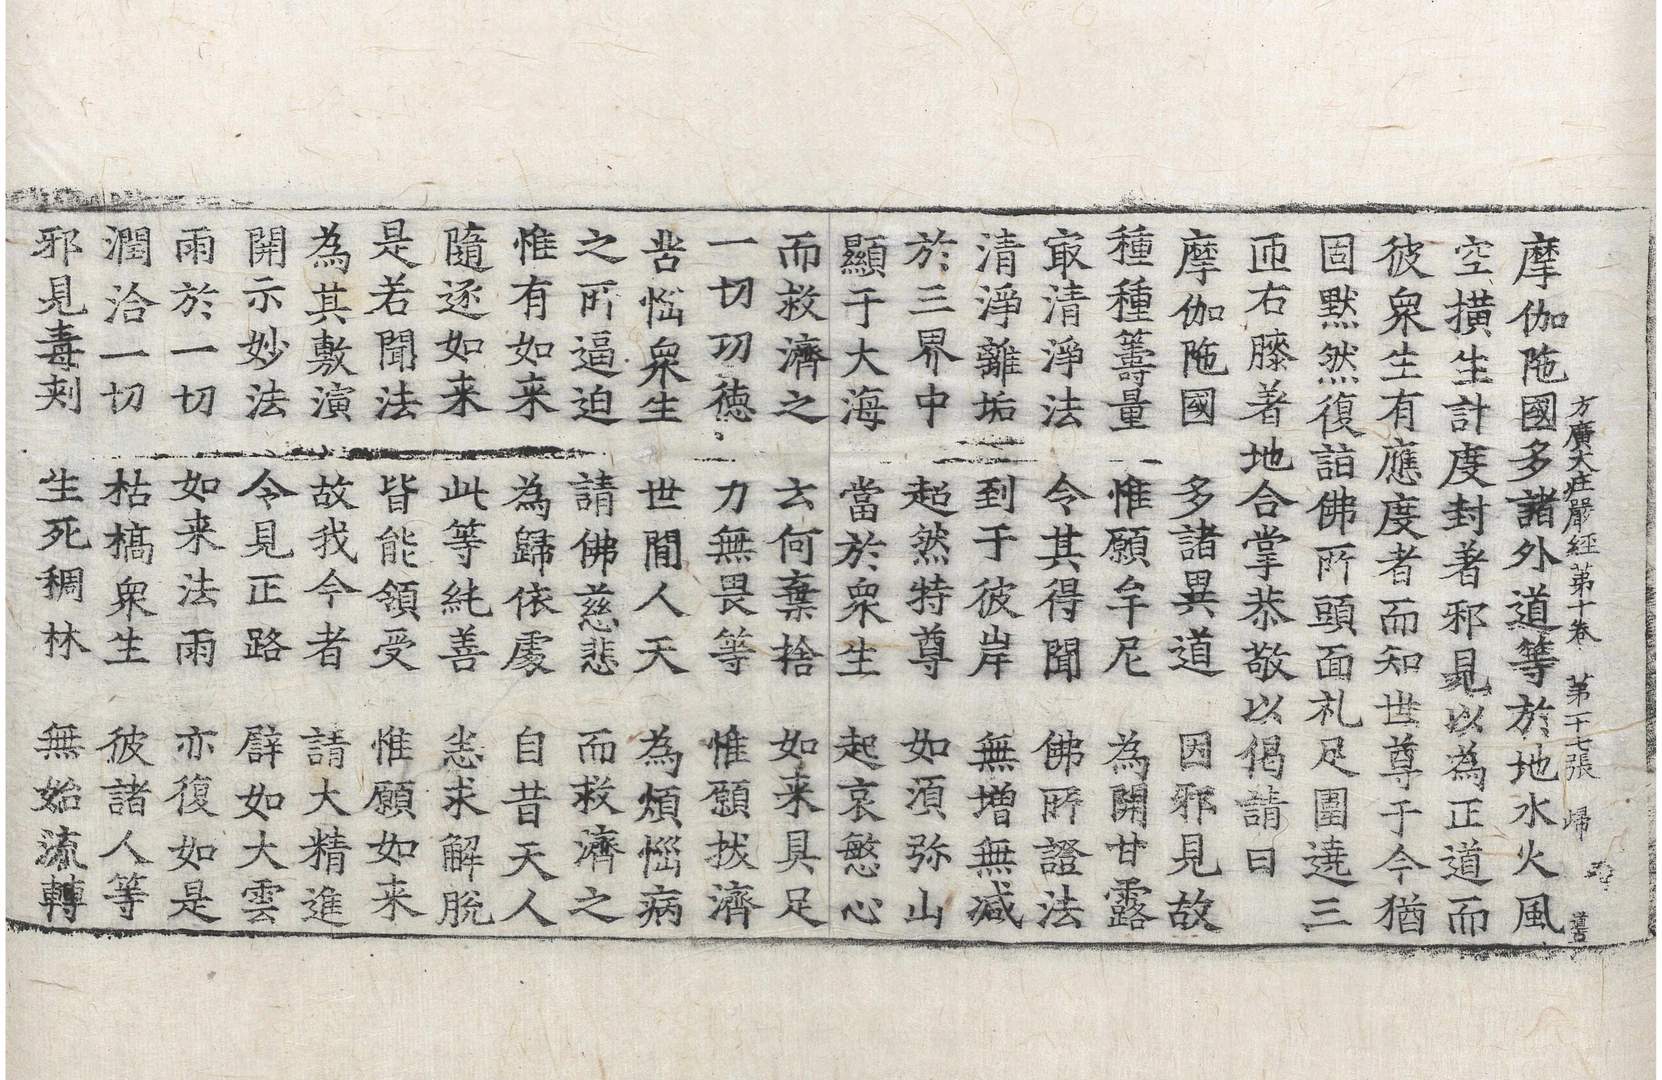 方廣大庄嚴經第十卷 第十七張 歸
摩伽陁國多諸外道等於地水火風
空撗生計度封著邪見以為正道而
彼衆生有應度者而知世尊于今猶
固黙然復詣佛所頭面礼足圍遶三
匝右膝著地合掌恭敬以偈請曰
摩伽陁國 多諸異道 因邪見故
種種籌量 惟願牟尼 為開甘露
㝡清淨法 令其得聞 佛所證法
清淨離垢 到于彼岸 無增無减
於三界中 超然特尊 如湏弥山
顯于大海 當於衆生 起哀愍心
而救濟之 云何棄捨 如来具足
一切功德 力無畏等 惟願拔濟
苦惱衆生 世間人天 為煩惱病
之所逼迫 請佛慈悲 而救濟之
惟有如来 為歸依處 自昔天人
隨逐如来 此等純善 悉求解脫
是若聞法 皆能領受 惟願如来
為其敷演 故我今者 請大精進
開示妙法 令見正路 譬如大雲
雨於一切 如来法雨 亦復如是
潤洽一切 枯槁衆生 彼諸人等
邪見毒刾 生死稠林 無始流轉